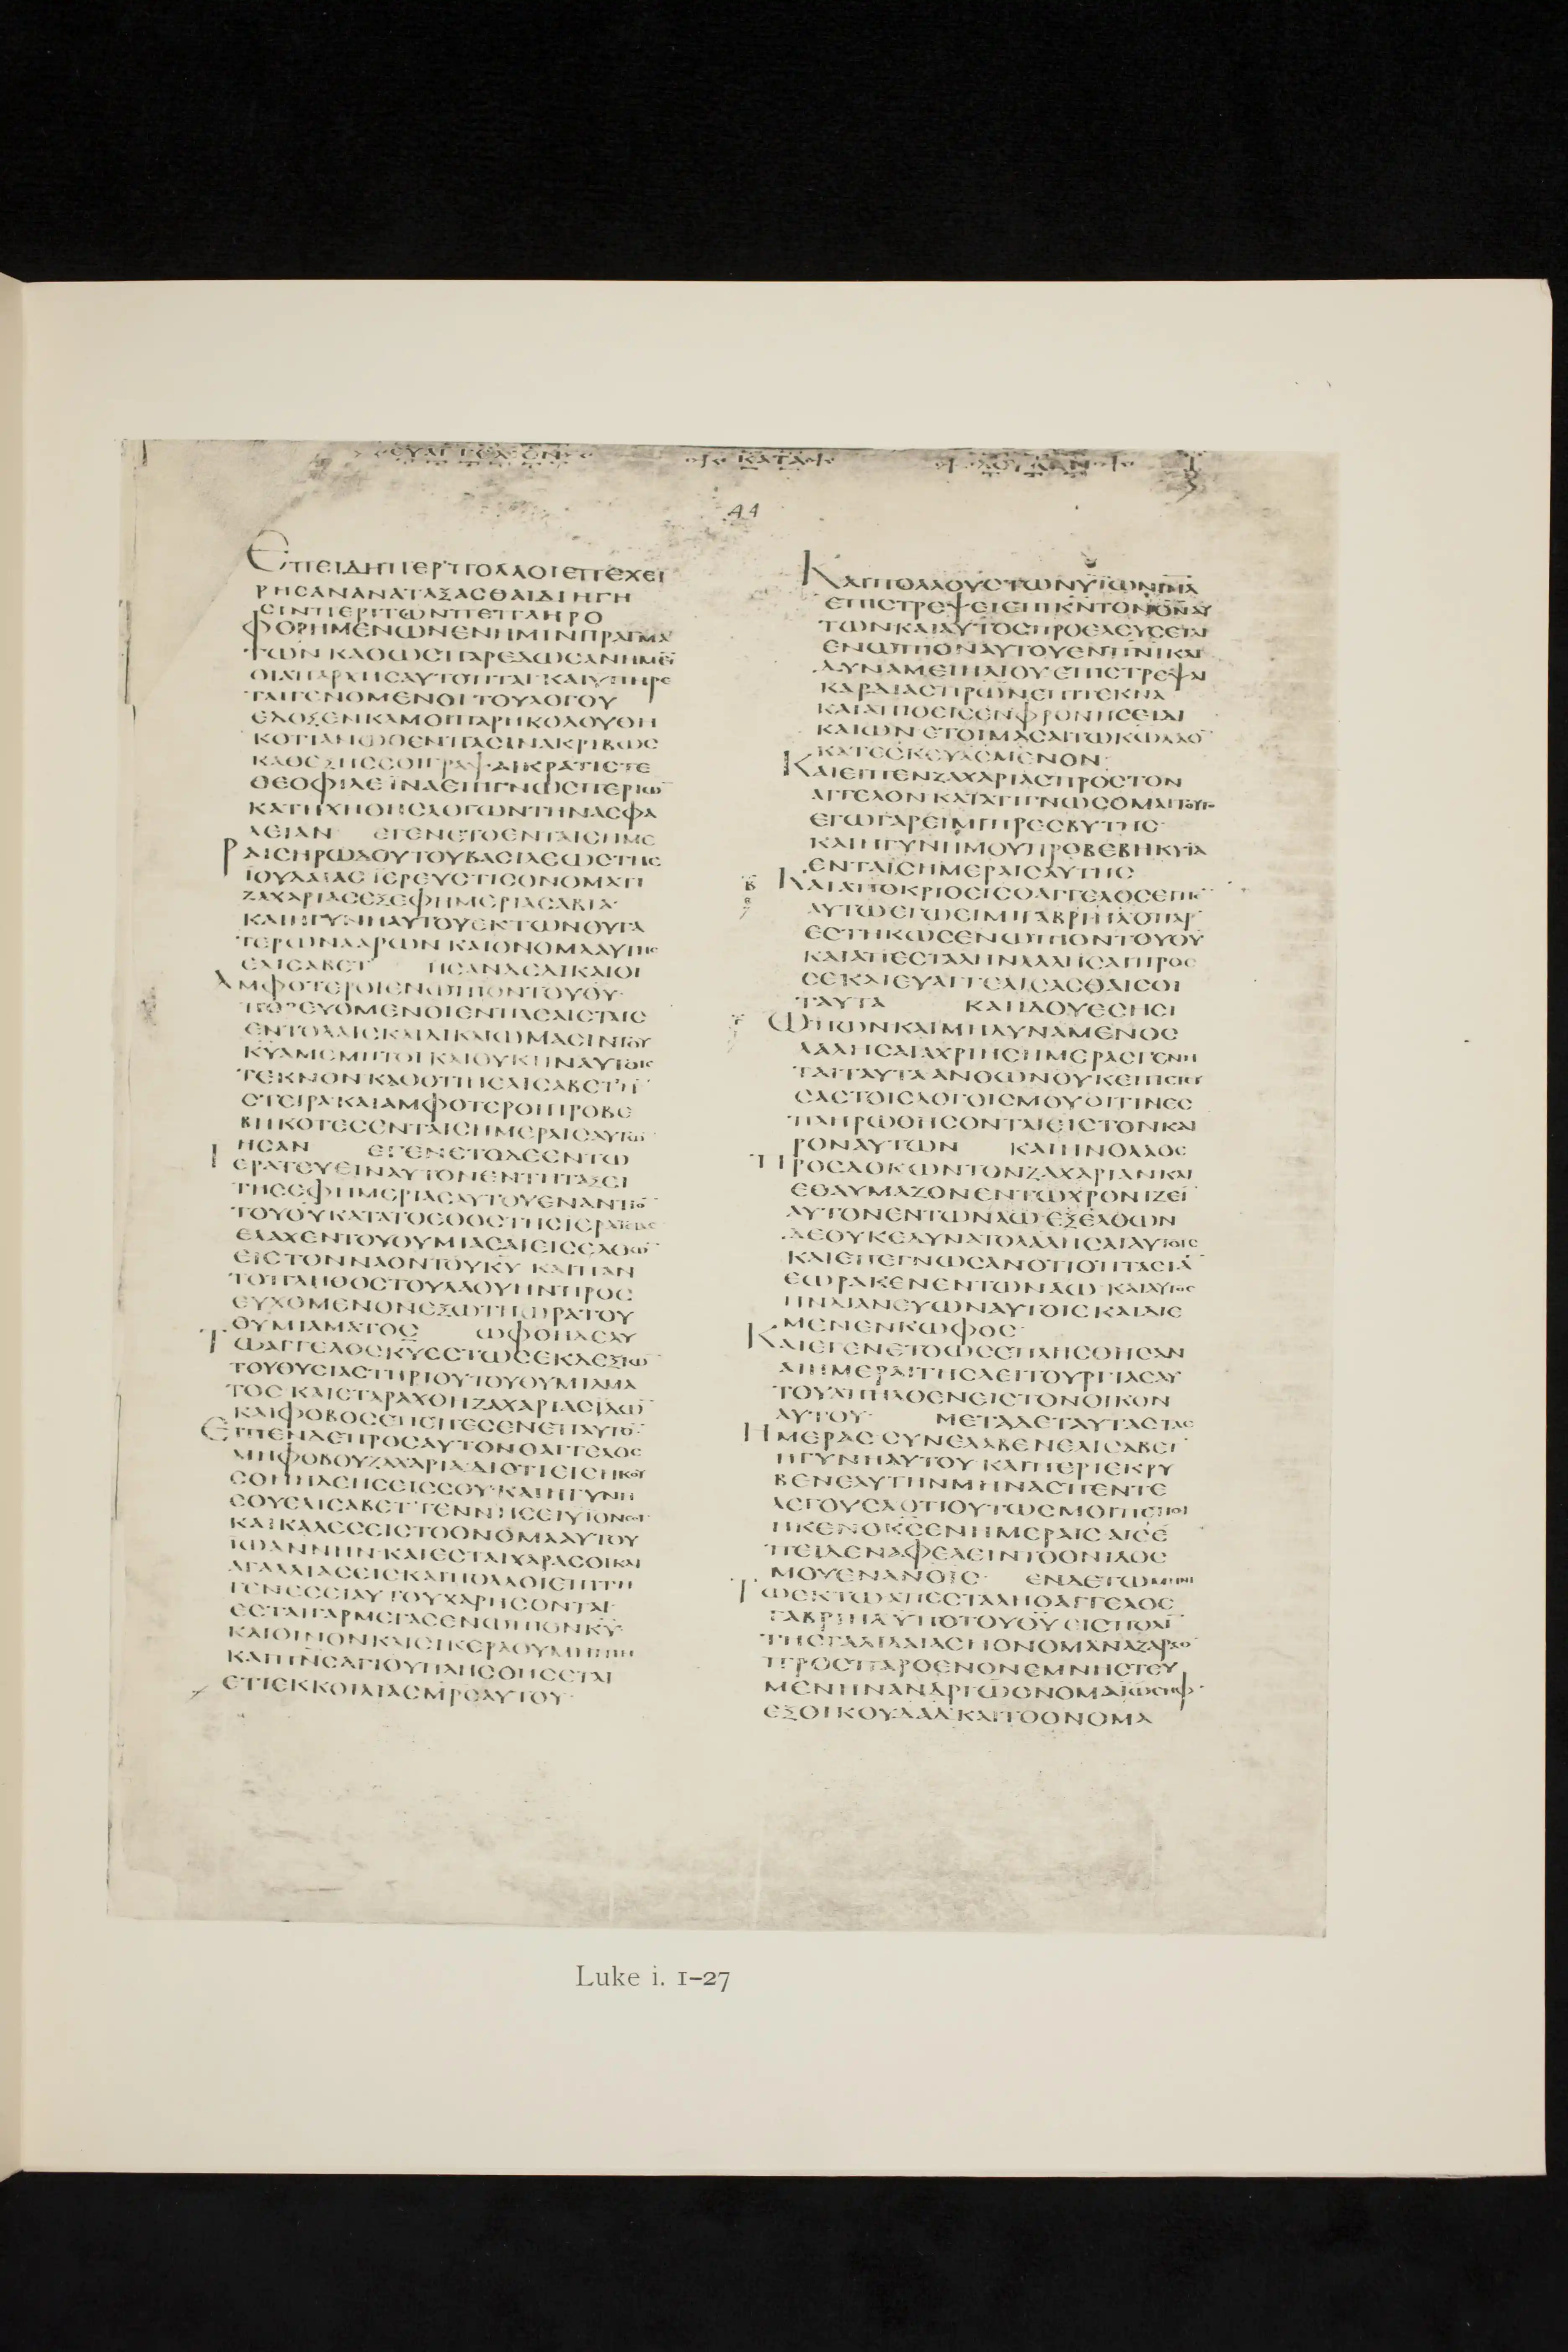 ΕΥΑΓΓΕΛΙΟΝ ΚΑΤΑ ΛΟΥΚΑΝ
44
ΕΠΕΙΔΗΠΕΡΠΟΛΛΟΙΕΠΕΧΕΙ
ΡΗΣΑΝΑΝΑΤΑΞΑΣΘΑΙΔΙΗΓΗ
ΣΙΝΠΕΡΙΤΩΝΠΕΠΛΗΡΟ
ΦΟΡΗΜΕΝΩΝΕΝΗΜΙΝΠΡΑΓΜΑ
ΤΩΝ ΚΑΘΩΣΠΑΡΕΔΩΣΑΝΗΜΕΙ
ΟΙΑΠΑΡΧΗΣΑΥΤΟΠΤΑΙ ΚΑΙΥΠΗΡΕ
ΤΑΙΓΕΝΟΜΕΝΟΙ ΤΟΥΛΟΓΟΥ
ΕΔΟΞΕΝΚΑΜΟΙΠΑΡΗΚΟΛΟΥΘΗ
ΚΟΤΙΑΝΩΘΕΝΠΑΣΙΝΑΚΡΙΒΩΣ
ΚΑΘΕΞΗΣΣΟΙΓΡΑΨΑΙΚΡΑΤΙΣΤΕ
ΘΕΟΦΙΛΕ ΪΝΑΕΠΙΓΝΩΣΠΕΡΙΩ̅
ΚΑΤΗΧΗΘΗΣΛΟΓΩΝΤΗΝΑΣΦΑ
ΛΕΙΑΝ ΕΓΕΝΕΤΟΕΝΤΑΙΣΗΜΕ
ΡΑΙΣΗΡΩΔΟΥΤΟΥΒΑΣΙΛΕΩΣΤΗΣ
ΪΟΥΔΑΙΑΣ ΪΕΡΕΥΣΤΙΣΟΝΟΜΑΤΙ
ΖΑΧΑΡΙΑΣΕΞΕΦΗΜΕΡΙΑΣΑΒΙΑ·
ΚΑΙΗΓΥΝΗΑΥΤΟΥΕΚΤΩΝΘΥΓΑ
ΤΕΡΩΝΑΑΡΩΝ ΚΑΙΟΝΟΜΑΑΥΤΗΣ
ΕΛΙΣΑΒΕΤ ΗΣΑΝΔΕΔΙΚΑΙΟΙ
ΑΜΦΟΤΕΡΟΙΕΝΩΠΙΟΝΤΟΥΘΥ·
ΠΟΡΕΥΟΜΕΝΟΙΕΝΠΑΣΑΙΣΤΑΙΣ
ΕΝΤΟΛΑΙΣΚΑΙΔΙΚΑΙΩΜΑΣΙΝΤΟΥ
ΚΥΑΜΕΜΠΤΟΙ ΚΑΙΟΥΚΗΝΑΥΤΟΙΣ
ΤΕΚΝΟΝ ΚΑΘΟΤΙΗΕΛΙΣΑΒΕΤΗ̅
ΣΤΕΙΡΑ ΚΑΙΑΜΦΟΤΕΡΟΙΠΡΟΒΕ
ΒΗΚΟΤΕΣΕΝΤΑΙΣΗΜΕΡΑΙΣΑΥΤΩ̅
ΗΣΑΝ ΕΓΕΝΕΤΟΔΕΕΝΤΩ
ΙΕΡΑΤΕΥΕΙΝΑΥΤΟΝΕΝΤΗΤΑΞΕΙ
ΤΗΣΕΦΗΜΕΡΙΑΣΑΥΤΟΥΕΝΑΝΤΙΟ̅
ΤΟΥΘΥΚΑΤΑΤΟΕΘΟΣΤΗΣΙΕΡΑΤΕΙΑΣ
ΕΛΑΧΕΝΤΟΥΘΥΜΙΑΣΑΙΕΙΣΕΛΘΩ̅
ΕΙΣΤΟΝΝΑΟΝΤΟΥΚΥ ΚΑΙΠΑΝ
ΤΟΠΛΗΘΟΣΤΟΥΛΑΟΥΗΝΠΡΟΣ
ΕΥΧΟΜΕΝΟΝΕΞΩΤΗΩΡΑΤΟΥ
ΘΥΜΙΑΜΑΤΟΣ ΩΦΘΗΔΕΑΥ
ΤΩΑΓΓΕΛΟΣΚΥΕΣΤΩΣΕΚΔΕΞΙΩ̅
ΤΟΥΘΥΣΙΑΣΤΗΡΙΟΥΤΟΥΘΥΜΙΑΜΑ
ΤΟΣ ΚΑΙΕΤΑΡΑΧΘΗΖΑΧΑΡΙΑΣΪΔΩ̅
ΚΑΙΦΟΒΟΣΕΠΕΠΕΣΕΝΕΠΑΥΤΟ̅
ΕΙΠΕΝΔΕΠΡΟΣΑΥΤΟΝΟΑΓΓΕΛΟΣ
ΜΗΦΟΒΟΥΖΑΧΑΡΙΑ·ΔΙΟΤΙΕΙΣΗΚΟΥ
ΣΘΗΗΔΕΗΣΙΣΣΟΥ·ΚΑΙΗΓΥΝΗ
ΣΟΥΕΛΙΣΑΒΕΤ ΓΕΝΝΗΣΕΙΥΙΟΝΣΟΙ
ΚΑΙΚΑΛΕΣΕΙΣΤΟΟΝΟΜΑΑΥΤΟΥ
ΙΩΑΝΝΗΝ·ΚΑΙΕΣΤΑΙΧΑΡΑΣΟΙΚΑΙ
ΑΓΑΛΛΙΑΣΕΙΣΚΑΙΠΟΛΛΟΙΕΠΙΤΗ
ΓΕΝΕΣΕΙΑΥΤΟΥΧΑΡΗΣΟΝΤΑΙ·
ΕΣΤΑΙΓΑΡΜΕΓΑΣΕΝΩΠΙΟΝΚΥ·
ΚΑΙΟΙΝΟΝΚΑΙΣΙΚΕΡΑΟΥΜΗΠΙΗ
ΚΑΙΠΝΣΑΓΙΟΥΠΛΗΣΘΗΣΕΤΑΙ
ΕΤΙΕΚΚΟΙΛΙΑΣΜΡΣΑΥΤΟΥ·
ΚΑΙΠΟΛΛΟΥΣΤΩΝΥΪΩΝΙΗΛ
ΕΠΙΣΤΡΕΨΕΙΕΠΙΚΝΤΟΝΘΝΑΥ
ΤΩΝΚΑΙΑΥΤΟΣΠΡΟΕΛΕΥΣΕΤΑΙ
ΕΝΩΠΙΟΝΑΥΤΟΥΕΝΠΝΙΚΑΙ
ΔΥΝΑΜΕΙΗΛΙΟΥ ΕΠΙΣΤΡΕΨΑΙ
ΚΑΡΔΙΑΣΠΡΩΝΕΠΙΤΕΚΝΑ
ΚΑΙΑΠΙΘΕΙΣΕΝΦΡΟΝΗΣΕΙΔΙ
ΚΑΙΩΝ ΕΤΟΙΜΑΣΑΙΤΩΚΩΛΑΟ̅
ΚΑΤΕΣΚΕΥΑΣΜΕΝΟΝ·
ΚΑΙΕΙΠΕΝΖΑΧΑΡΙΑΣΠΡΟΣΤΟΝ
ΑΓΓΕΛΟΝ ΚΑΤΑΤΙΓΝΩΣΟΜΑΙΤΟΥΤΟ
ΕΓΩΓΑΡΕΙΜΙΠΡΕΣΒΥΤΗΣ·
ΚΑΙΗΓΥΝΗΜΟΥΠΡΟΒΕΒΗΚΥΪΑ
ΕΝΤΑΙΣΗΜΕΡΑΙΣΑΥΤΗΣ
ΚΑΙΑΠΟΚΡΙΘΕΙΣΟΑΓΓΕΛΟΣΕΙΠΕ̅
ΑΥΤΩΕΓΩΕΙΜΙΓΑΒΡΙΗΛΟΠΑΡ
ΕΣΤΗΚΩΣΕΝΩΠΙΟΝΤΟΥΘΥ
ΚΑΙΑΠΕΣΤΑΛΗΝΛΑΛΗΣΑΙΠΡΟΣ
ΣΕΚΑΙΕΥΑΓΓΕΛΙΣΑΣΘΑΙΣΟΙ
ΤΑΥΤΑ ΚΑΙΙΔΟΥΕΣΗΣΙ
ΩΠΩΝΚΑΙΜΗΔΥΝΑΜΕΝΟΣ
ΛΑΛΗΣΑΙΑΧΡΙΗΣΗΜΕΡΑΣΓΕΝΗ
ΤΑΙΤΑΥΤΑΑΝΘΩΝΟΥΚΕΠΙΣΤΕΥ
ΣΑΣΤΟΙΣΛΟΓΟΙΣΜΟΥΟΙΤΙΝΕΣ
ΠΛΗΡΩΘΗΣΟΝΤΑΙΕΙΣΤΟΝΚΑΙ
ΡΟΝΑΥΤΩΝ ΚΑΙΗΝΟΛΑΟΣ
ΠΡΟΣΔΟΚΩΝΤΟΝΖΑΧΑΡΙΑΝΚΑΙ
ΕΘΑΥΜΑΖΟΝΕΝΤΩΧΡΟΝΙΖΕΙ̅
ΑΥΤΟΝΕΝΤΩΝΑΩ·ΕΞΕΛΘΩΝ
ΔΕΟΥΚΕΔΥΝΑΤΟΛΑΛΗΣΑΙΑΥΤΟΙΣ
ΚΑΙΕΠΕΓΝΩΣΑΝΟΤΙΟΠΤΑΣΙΑ̅
ΕΩΡΑΚΕΝΕΝΤΩΝΑΩ ΚΑΙΑΥΤΟΣ
ΗΝΔΙΑΝΕΥΩΝΑΥΤΟΙΣ ΚΑΙΔΙΕ
ΜΕΝΕΝΚΩΦΟΣ·
ΚΑΙΕΓΕΝΕΤΟΩΣΕΠΛΗΣΘΗΣΑΝ
ΑΙΗΜΕΡΑΙΤΗΣΛΕΙΤΟΥΡΓΙΑΣΑΥ
ΤΟΥΑΠΗΛΘΕΝΕΙΣΤΟΝΟΙΚΟΝ
ΑΥΤΟΥ· ΜΕΤΑΔΕΤΑΥΤΑΣΤΑΣ
ΗΜΕΡΑΣ ΣΥΝΕΛΑΒΕΝΕΛΙΣΑΒΕΤ
ΗΓΥΝΗΑΥΤΟΥ ΚΑΙΠΕΡΙΕΚΡΥ
ΒΕΝΕΑΥΤΗΝΜΗΝΑΣΠΕΝΤΕ
ΛΕΓΟΥΣΑΟΤΙΟΥΤΩΣΜΟΙΠΕΠΟΙ
ΗΚΕΝΟΚΣΕΝΗΜΕΡΑΙΣΑΙΣΕ
ΠΕΙΔΕΝΑΦΕΛΕΙΝΤΟΟΝΙΔΟΣ
ΜΟΥΕΝΑΝΟΙΣ· ΕΝΔΕΤΩΜΗΝΙ
ΤΩΕΚΤΩΑΠΕΣΤΑΛΗΟΑΓΓΕΛΟΣ
ΓΑΒΡΙΗΛΥΠΟΤΟΥΘΥ ΕΙΣΠΟΛΙ̅
ΤΗΣΓΑΛΙΛΑΙΑΣΗΟΝΟΜΑΝΑΖΑΡΕΘ
ΠΡΟΣΠΑΡΘΕΝΟΝΕΜΝΗΣΤΕΥ
ΜΕΝΗΝΑΝΔΡΙΩΟΝΟΜΑΙΩΣΗΦ·
ΕΞΟΙΚΟΥΔΑΔ ΚΑΙΤΟΟΝΟΜΑ
Luke i. 1–27